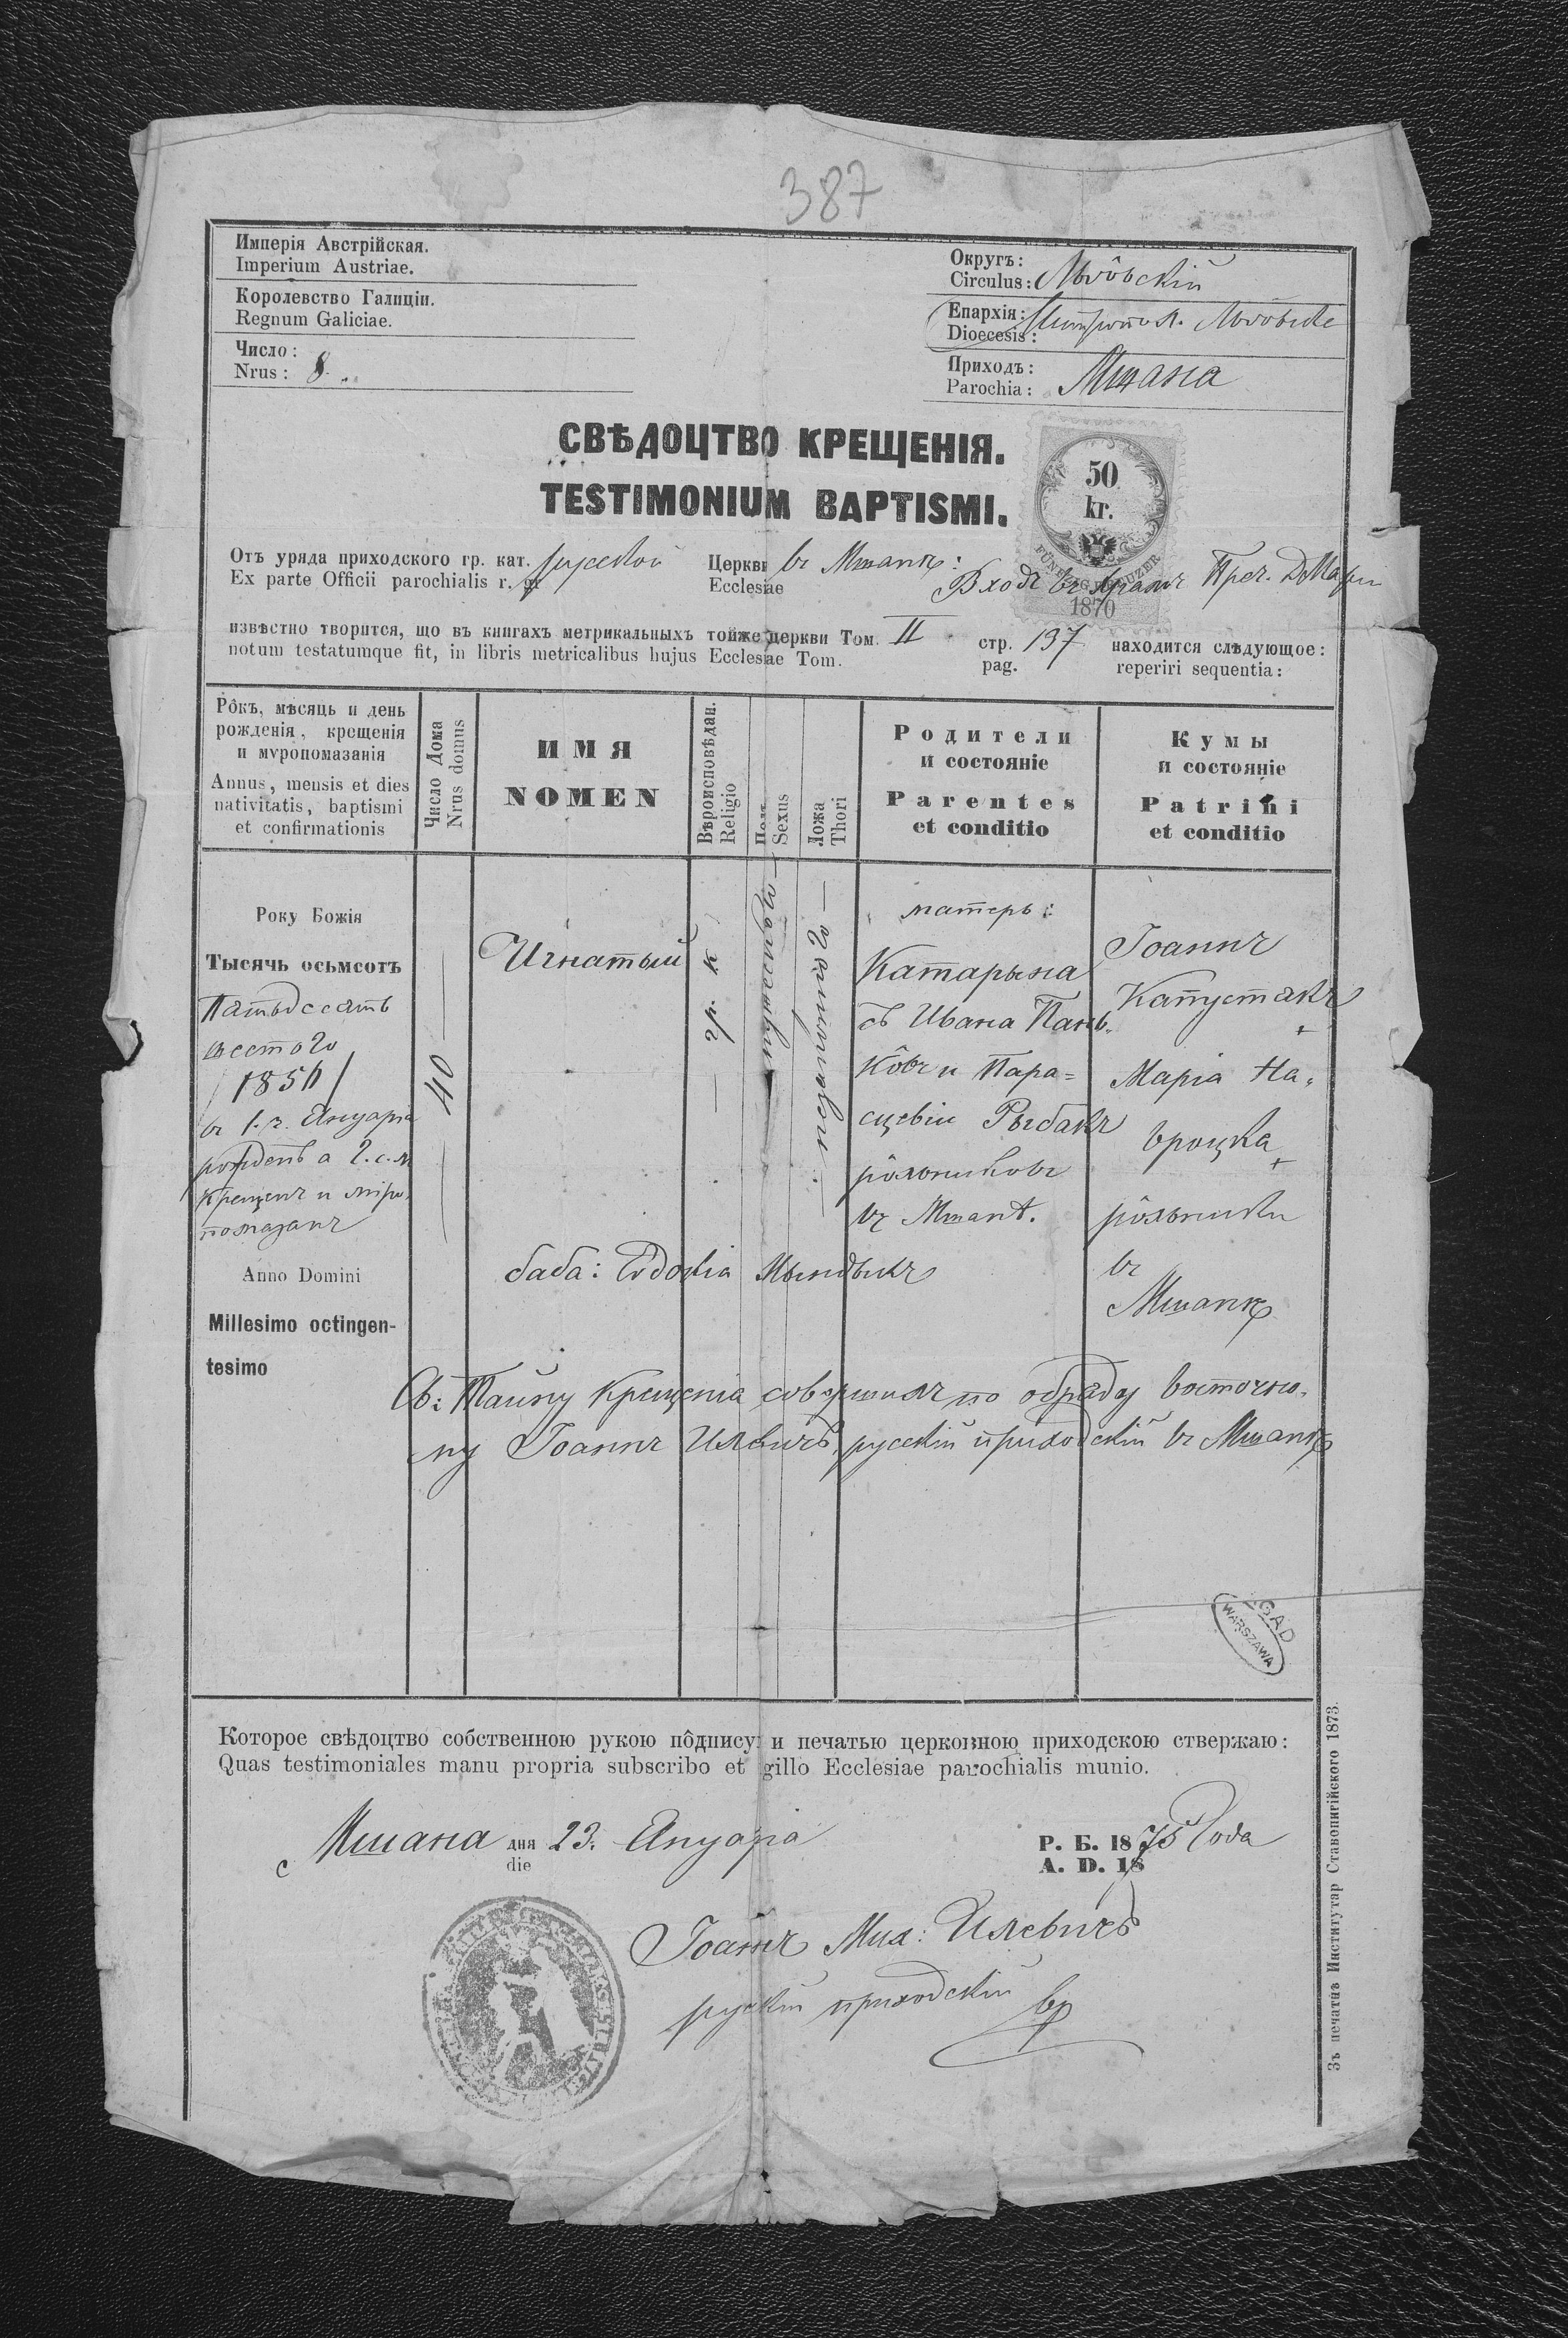 387
Имперія Австрійская.
Imperium Austriae.
Королевство Галиціи.
Regnum Galiciae.
Число:
Nrus: 8.
Округъ:
Circulus: Львôвскій
Епархія:
Dioecesis: Митропол. Львôвске
Приходъ:
Parochia: Мшана
СВѢДОЦТВО КРЕЩЕНІЯ.
TESTIMONIUM BAPTISMI.
50
kr.
1870
Отъ уряда приходского гр. кат. русской Церкви въ Мшанѣ:
Ex parte Officii parochialis r. gr. Ecclesiae Входъ въ храмъ Преч. Д. Маріи
извѣстно творится, що въ книгахъ метрикальныхъ тойже церкви Том. II стр. 137 находится слѣдующое:
notum testatumque fit, in libris metricalibus hujus Ecclesiae Tom. pag. reperiri sequentia:
Рôкъ, мѣсяць и день
рожденія, крещенія
и мѵропомазанія
Annus, mensis et dies
nativitatis, baptismi
et confirmationis
Число Дома
Nrus domus
ИМЯ
NOMEN
Вѣроисповѣдан.
Religio
Полъ
Sexus
Ложа
Thori
Родители
и состояніе
Parentes
et conditio
Кумы
и состояніе
Patrini
et conditio
Року Божія
Тысячь осьмсотъ
Пятьдесять
шестого
/1856/
въ 1. Януарія
рожденъ а 2. с. м.
крещенъ и мѵро-
помазанъ
Anno Domini
Millesimo octingen-
tesimo
40
Игнатый
гр. к
мужеского
незаконного
матерь:
Катарына
съ Ивана Пань-
кôвъ и Пара=
сцевіи Рыбакъ
рôльниковъ
въ Мшанѣ.
Іоаннъ
Капустякъ
+
Марія На-
вроцка
+
рôльники
въ
Мшанѣ
баба: Евдокія Мындыкъ
Св: Тайну Крещенія совершилъ по обряду восточно-
му Іоаннъ Илевичъ, русскій приходскій въ Мшанѣ
AGAD
WARSZAWA
Которое свѣдоцтво собственною рукою пôдпису и печатью церковною приходскою ствержаю:
Quas testimoniales manu propria subscribo et gillo Ecclesiae parochialis munio.
Мшана дня 23. Януарія Р. Б. 1875 Года
die A. D. 18
Іоаннъ Мих: Илевичъ
рускій приходскій вр
Зъ печатнѣ Институтар Ставопигійского 1873.